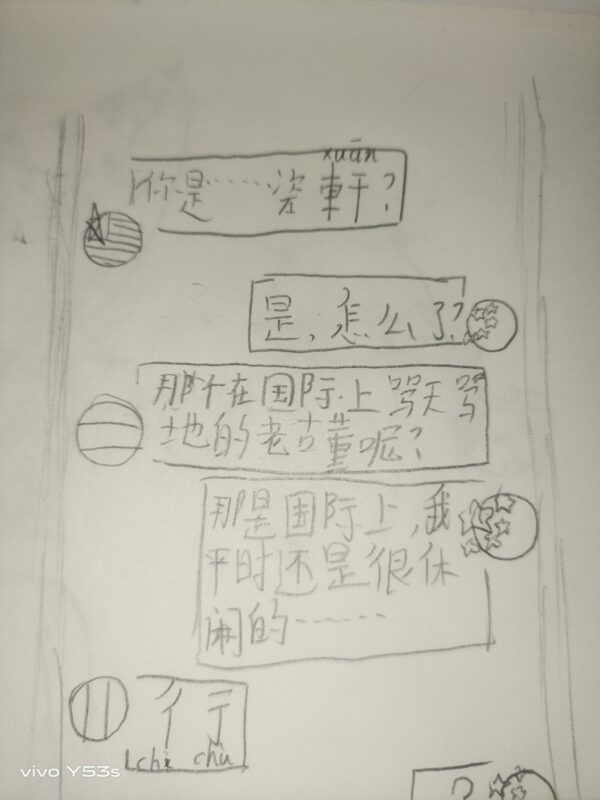 xuān
你是……瓷軒?
是,怎么了?
那个在国际上骂天骂
地的老古董呢?
那是国际上,我
平时还是很休
闲的……
彳亍
chì chù
?
vivo Y53s